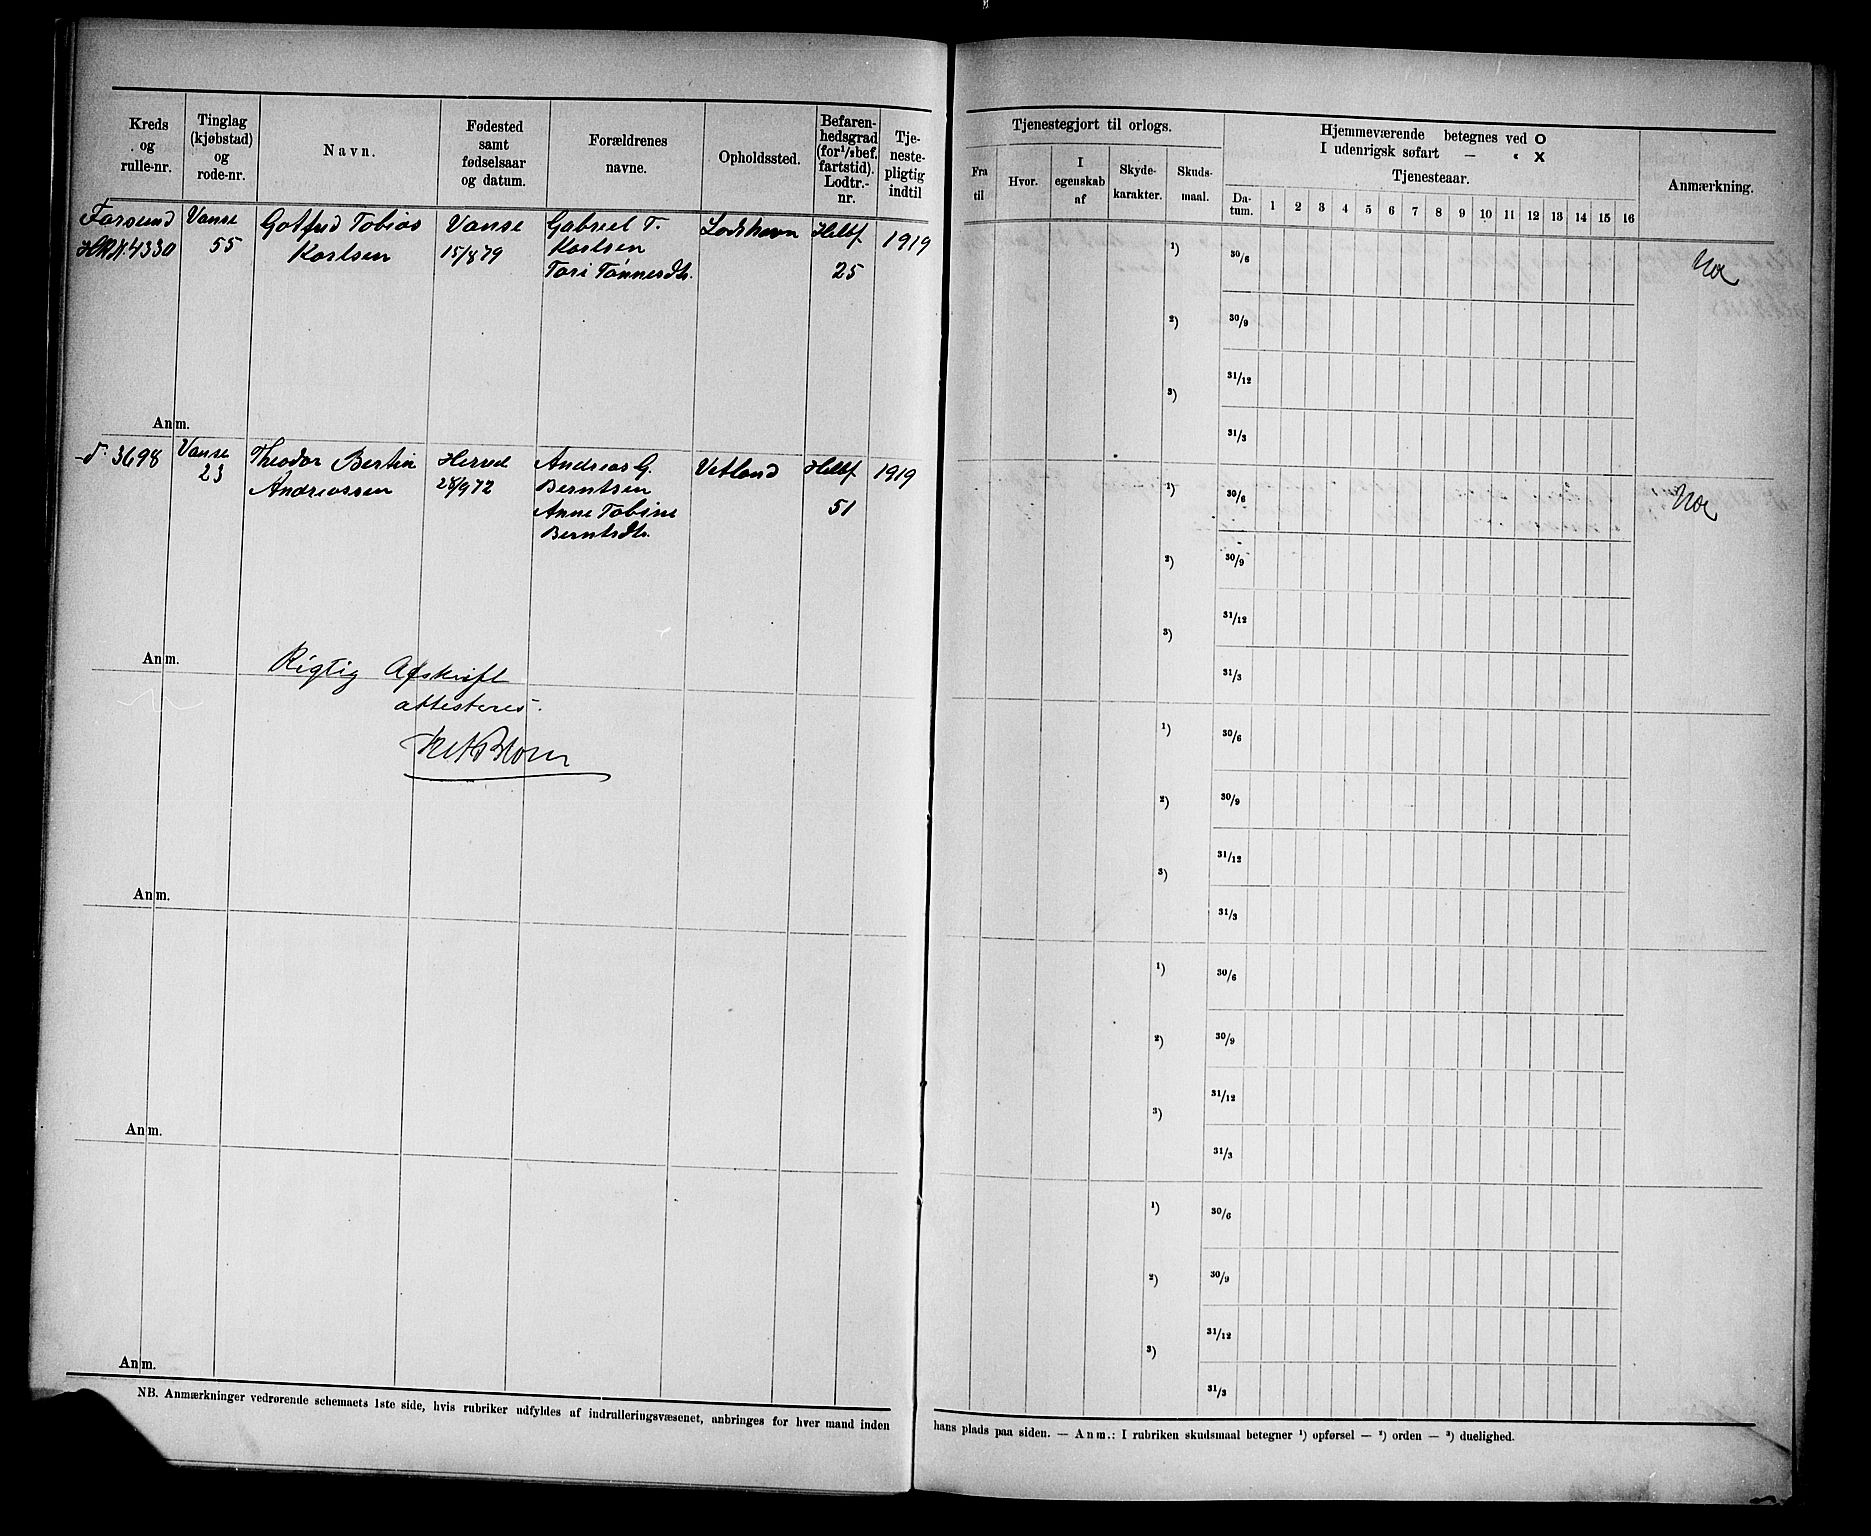 Kreds og rulle-nr.
Tinglag (kjøbstad) og rode-nr.
Navn.
Fødested samt fødselsaar og datum.
Forældrenes navne.
Opholdssted.
Befarenhedsgrad (for 1/2 bef. fartstid). Lodtr.-nr.
Tjenestepligtig indtil
Tjenestegjort til orlogs.
Fra til
Hvor.
I egenskab af
Skydekarakter.
Skudsmaal.
Hjemmeværende betegnes ved O
I udenrigsk søfart — " X
Tjenesteaar.
Datum. 1 2 3 4 5 6 7 8 9 10 11 12 13 14 15 16
Anmærkning.
Farsund Vanse Gotfred Tobias Vanse Gabriel T. Lodshavn Helbf 1919
4330 55 Karlsen 15/8 79 Karlsen 25
Tari Tønnesdtr.
1) 30/6
2) 30/9
3) 31/12
31/3
Anm.
d. 3698 Vanse Theodor Bertin Herred Andreas G. Vatland Helbf 1919
23 Andreassen 28/9 72 Berntsen 51
Anne Tobine
Berntsdtr.
1) 30/6
2) 30/9
3) 31/12
31/3
Anm.
Rigtig Afskrift
attesteres.
1) 30/6
2) 30/9
3) 31/12
31/3
Anm.
1) 30/6
2) 30/9
3) 31/12
31/3
Anm.
1) 30/6
2) 30/9
3) 31/12
31/3
Anm.
NB. Anmærkninger vedrørende schemaets 1ste side, hvis rubriker udfyldes af indrulleringsvæsenet, anbringes for hver mand inden
hans plads paa siden. — Anm.: I rubriken skudsmaal betegner 1) opførsel — 2) orden — 3) duelighed.